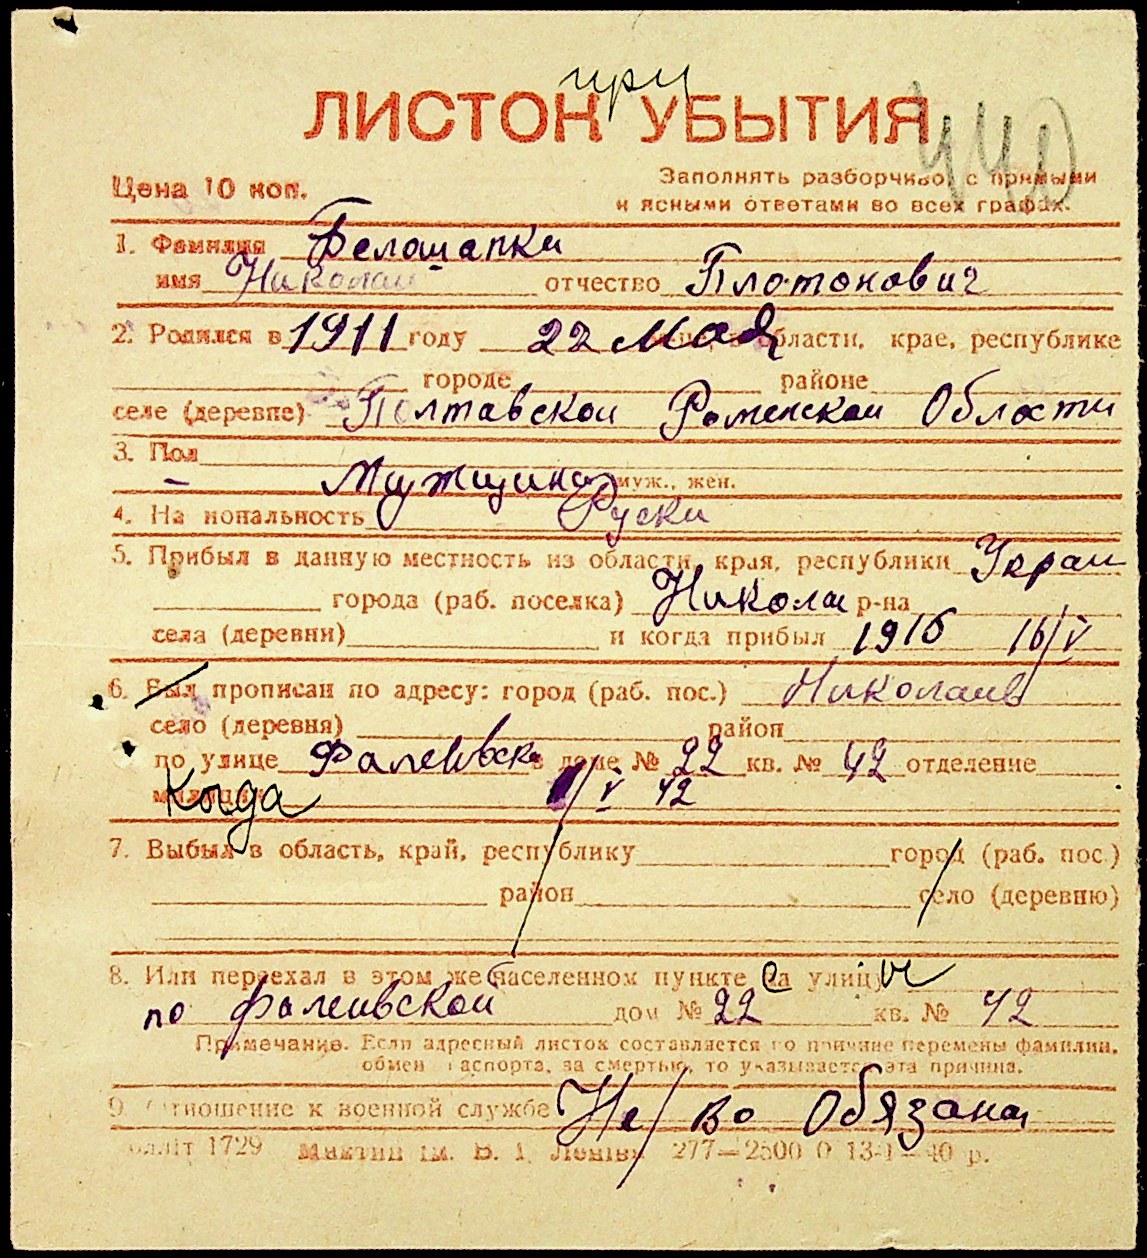 при
ЛИСТОК УБЫТИЯ
440
Цена 10 коп.
Заполнять разборчиво, с прямыми
и ясными ответами во всех графах.
1. Фамилия Белошапки
имя Николаи отчество Плотонович
2. Родился в 1911 году 22 Мая области, крае, республике
городе районе
селе (деревпе) Полтавскои Роменскои Области
3. Пол
– Мущщина муж., жен.
4. На нональность Руски
5. Прибыл в данную местность из области, края, республики Украи
города (раб. поселка) Николаи р-на
села (деревни) и когда прибыл 1916 16/V
6. Был прописан по адресу: город (раб. пос.) Николаив
село (деревня) район
по улице Фалеивск в доме № 22 кв. № 42 отделение
милиции Когда 1/V 42
7. Выбыл в область, край, республику город (раб. пос.)
район село (деревню)
8. Или переехал в этом же населенном пункте с улицы
по фалеивской дом № 22 кв. № 42
Примечание. Если адресный листок составляется по причине перемены фамилии,
обмен паспорта, за смертью, то указывается эта причина.
9. Отношение к военной службе Не/во Обязаный
1729 ім. В. І. Леніна 277—2500 0 13-1-40 р.